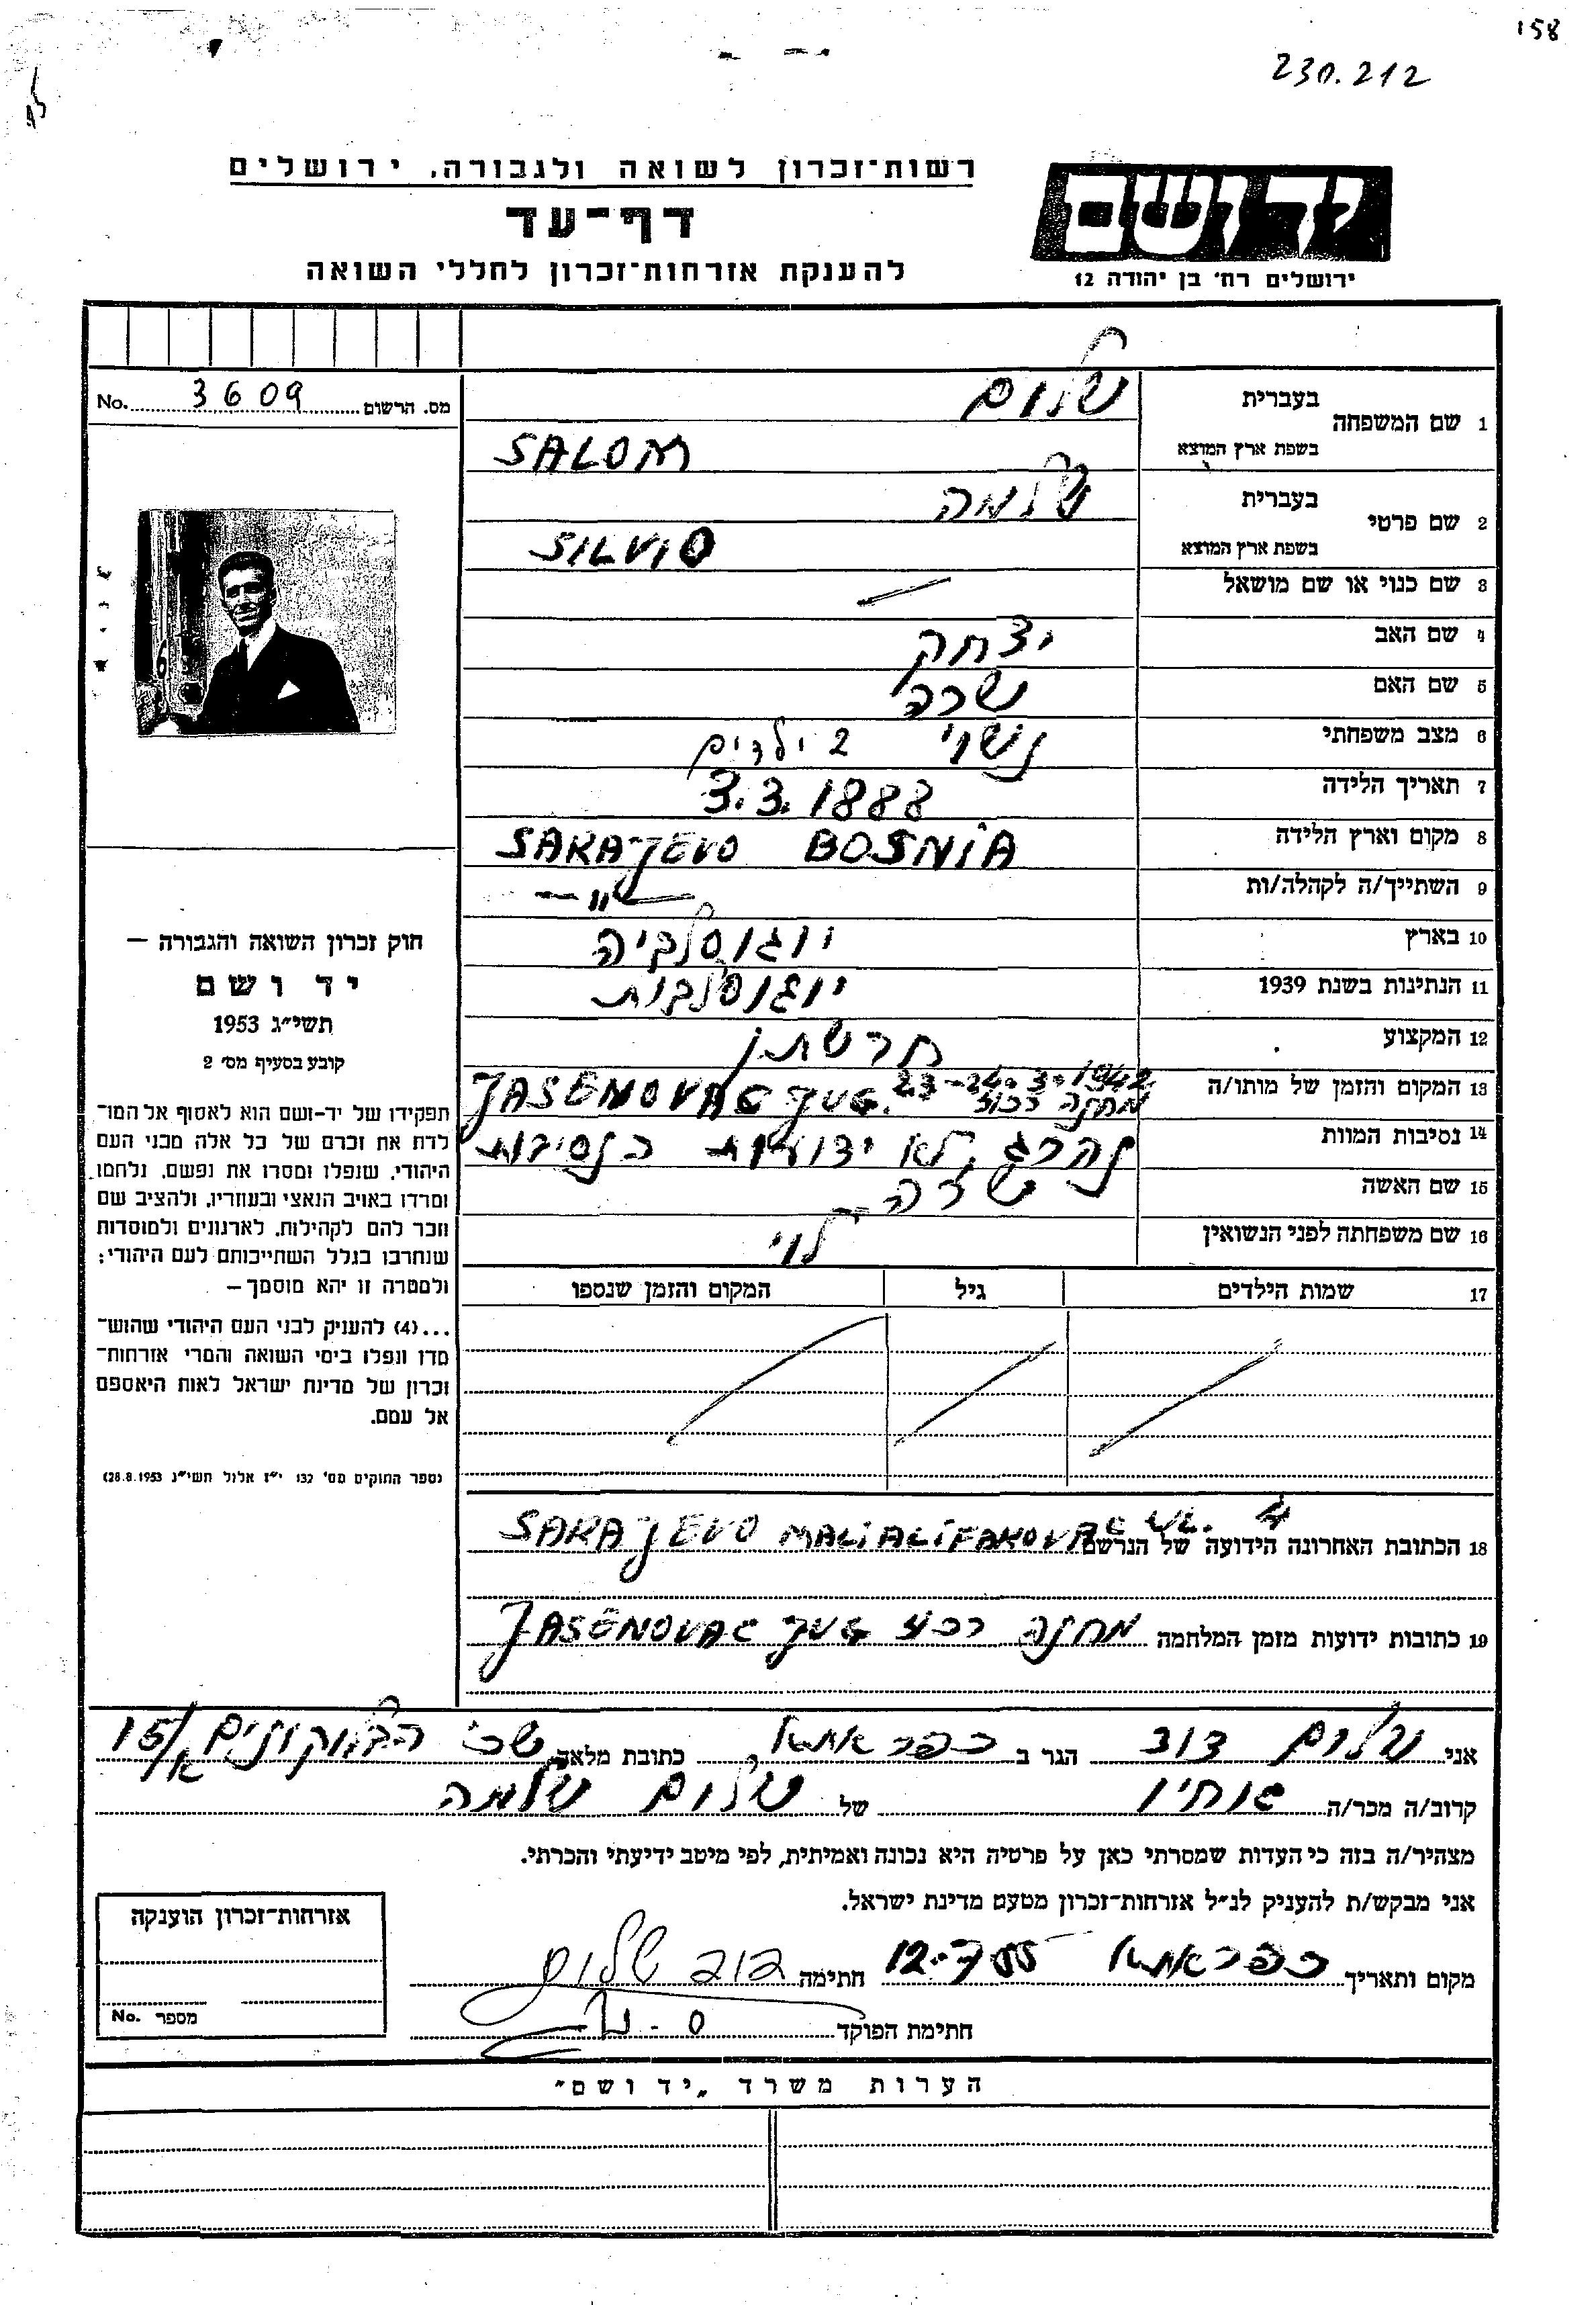 158
230.212
רשות־זכרון לשואה ולגבורה, ירושלים
דף־עד
להענקת אזרחות־זכרון לחללי השואה
יד ושם
ירושלים רח' בן יהודה 12
מס. הרשום 3609 No.
1 שם המשפחה בעברית שלום
בשפת ארץ המוצא SALOM
2 שם פרטי בעברית שלמה
בשפת ארץ המוצא SILVIO
3 שם כנוי או שם מושאל
4 שם האב יצחק
5 שם האם שרה
6 מצב משפחתי נשוי 2 ילדים
7 תאריך הלידה 3.3.1888
8 מקום וארץ הלידה SARAJEVO BOSNIA
9 השתייך/ה לקהלה/ות — 〃 —
10 בארץ יוגוסלביה
11 הנתינות בשנת 1939 יוגוסלבית
12 המקצוע חרשתן
13 המקום והזמן של מותו/ה JASENOVAC JUG. 23-24.3.1942 מחנה רכוז
14 נסיבות המוות נהרג, לא ידועות הנסיבות
15 שם האשה
16 שם משפחתה לפני הנשואין לוי
17 שמות הילדים גיל המקום והזמן שנספו
18 הכתובת האחרונה הידועה של הנרשם SARAJEVO MALI ALIFAKOVAC UL. 4
19 כתובות ידועות מזמן המלחמה מחנה רכוז JASENOVAC JUG
חוק זכרון השואה והגבורה —
יד ושם
תשי״ג 1953
קובע בסעיף מס׳ 2
תפקידו של יד־ושם הוא לאסוף אל המו־
לדת את זכרם של כל אלה מבני העם
היהודי, שנפלו ומסרו את נפשם, נלחמו
ומרדו באויב הנאצי ובעוזריו, ולהציב שם
וזכר להם לקהילות, לארגונים ולמוסדות
שנחרבו בגלל השתייכותם לעם היהודי;
ולמטרה זו יהא מוסמך —
...(4) להעניק לבני העם היהודי שהוש־
מדו ונפלו בימי השואה והמרי אזרחות־
זכרון של מדינת ישראל לאות היאספם
אל עמם.
(ספר החוקים מס׳ 132 י״ז אלול תשי״ג 28.8.1953)
אני שלום דוד הגר ב כפר אתא כתובת מלאה שכ׳ 15/א
קרוב/ה מכר/ה אחיו של שלום שלמה
מצהיר/ה בזה כי העדות שמסרתי כאן על פרטיה היא נכונה ואמיתית, לפי מיטב ידיעתי והכרתי.
אני מבקש/ת להעניק לנ״ל אזרחות־זכרון מטעם מדינת ישראל.
מקום ותאריך כפר אתא 12.7.55 חתימה דוד שלום
חתימת הפוקד
אזרחות־זכרון הוענקה
מספר No.
הערות משרד „יד ושם״